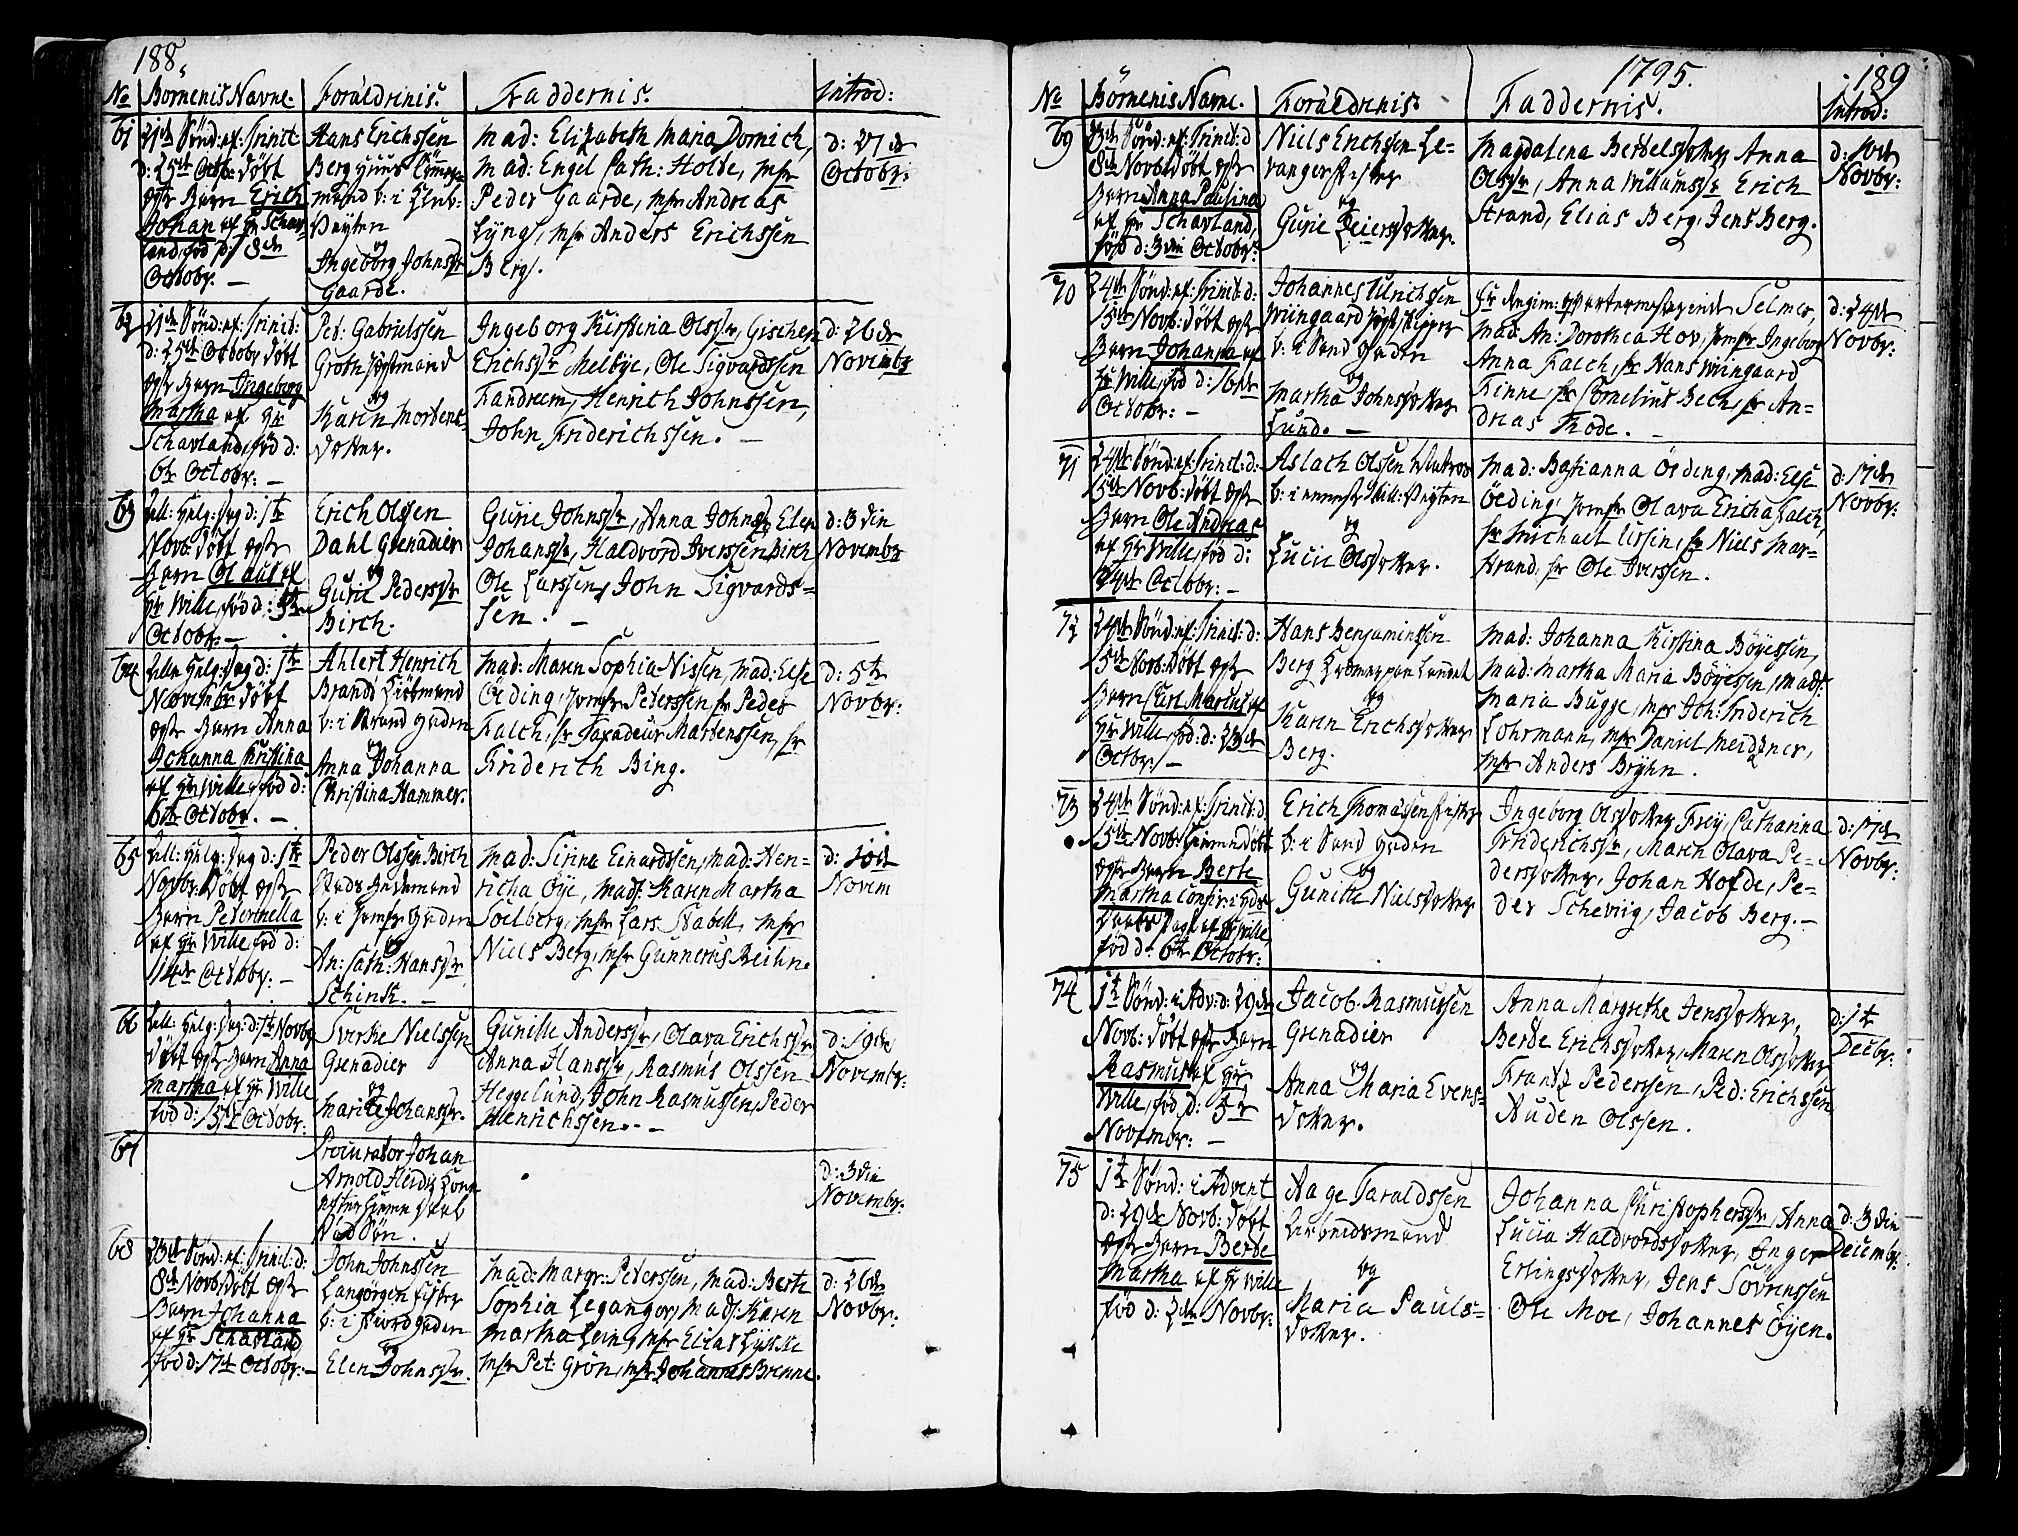 188.
No Börnenis Navne. Forældrenis. Faddernis. Introd:
61
21de Sönd: ef: Trinit:
d: 25de Octb: döbt
Barn Erich
Johan af Hr Schav-
land, föd d: 8de
Octobr. —
Hans Erichssen
Berg
mand b: i
og
Ingeborg Johnsdr
Gaarde.
Mad: Elizabeth Maria Dornich,
Mad: Engel Cath: Holde, Msr
Peder Gaarde, Msr Andreas
Lyng, Msr Anders Erichssen
Berg.
d: 27de
Octobr:
62
21de Sönd: ef: Trinit:
d: 25de Octobr döbt
Barn Ingeborg
Martha af Hr
Schavland, föd d:
6te Octobr. —
Ped: Gabrielssen
Groth
og
Karen Mortens-
dotter.
Ingeborg Kistina Olsdr, Gischen
Erichsdr Melbye, Ole Sigvardssen
Fandrem, Henrich Johnssen,
John Friderichssen. —
d: 26de
Novembr
63
All: Helg: Dag d: 1te
Novb döbt
Barn Olaus af
Hr Wille, föd d: 5te
Octobr: —
Erich Olssen
Dahl Grenadier
og
Gurie Pedersdr
Birch.
Gurie Johnsdr, Anna Johnsdr Elen
Johansdr, Haldvord Iverssen Birch
Ole Larssen, John Sigvards-
sen. —
d: 3die
Novembr
64
Alle Helg: Dag d: 1te
Novembr döbt
Barn Anna
Johanna Kistina
af Hr Wille, föd d:
6te Octobr. —
Ahlert Henrich
Brandt Kiöbmand
b: i Strand Gaden
og
Anna Johanna
Christina Hammer.
Mad: Maren Sophia Nissen, Mad: Else
Öeding, Jomfr Peterssen, Hr Peder
Falch, Hr Taxadeur Martenssen, Hr
Friderich Bing.
d: 5te
Novbr:
65
All: Helg: Dag d: 1te
Novbr: döbt
Barn Peternella
af Hr Wille, föd d:
14de Octobr: —
Peder Olssen Birch
b: i Jomfr Gaden
og
An: Cath: Hansdr
Schink. —
Mad: Sirina Einardssen, Mad: Hen-
richa Öye, Mad: Karen Martha
Soelberg, Msr Lars Nabell, Msr
Niels Berg, Msr Gunnerus Reihn.
d: 10de
Novem
66
All: Helg: Dag d: 1te Novbr
döbt Barn Anna
Martha af Hr Wille
föd d: 13de Octobr:
Sivertte Nielssen
Grenadier
og
Marite Johansdr.
Gunille Andersdr, Olava Erichsdr
Anna Hansdr, Rasmus Olssen
Heggelund, John Rasmussen, Peder
Henrichssen. —
d: 19de
Novembr:
67
Procurator Johan
Arnold Heidtz Kone
efter hiemme
Död Sön.
d: 3die
Novembr:
68
23de Sönd: ef: Trinit: d:
8de Novb: döbt
Barn Johanna
af Hr Schavland
föd d: 17de Octobr: —
John Johnssen
Langörgen Fisker
b: i Fiord Gaden
og
Elen Johnsdr.
Mad: Margr: Peterssen, Mad: Berth
Sophia Legangor, Mad: Karen
Martha Leing, Msr Elias Lyske
Msr Pet: Grön, Msr Johannes Brenne.
d: 26de
Novbr:
1795. 189
No Börnenis Navne. Forældrenis Faddernis. Introd:
69
23de Sönd: ef: Trinit: d
8de Novb: döbt
Barn Anna Paulina
af Hr Schavland,
föd d: 3die Octobr:
Niels Erichssen Le-
vanger Fisker
og
Gurie Leiersdotter.
Magdalena Berdelsdotter Anna
Olsdr, Anna Willumsdr Erich
Strand, Elias Berg, Jens Berg.
d: 10de
Novbr:
70
24de Sönd: ef: Trinit: d:
15de Novb: döbt
Barn Johanna af
Hr Wille, föd d: 16de
Octobr: —
Johannes Ulrichssen
Wiingaard
b: i Sand Gaden
og
Martha Johnsdotter
Lund. —
Hr Regim: Qvartermesterinde Selmer,
Mad: An: Dorothea Hov, Jomfr Ingeborg
Anna Falch, Hr Hans Wiingaard
Finne, Hr Cornelius Bech, Hr An-
dreas Rode. —
d: 24de
Novbr:
71
24de Sönd: ef: Trinit: d:
15de Novb: döbt
Barn Ole Andreas
af Hr Wille, föd d:
24de Octobr: —
Aslach Olssen
og
Lucie Olsdotter.
Mad: Bastianna Öeding, Mad: Else
Öeding Jomfr Olava Ericha Falch,
Hr Michael Lissen, Hr Niels Mar-
strand, Hr Ole Iverssen.
d: 17de
Novbr:
72
24de Sönd: ef: Trinit: d:
15de Novb: döbt
Barn Carl Marius af
Hr Wille, föd: d: 23de
Octbr: —
Hans Benjaminssen
Berg
og
Karen Erichsdotter
Berg.
Mad: Johanna Kistina Böyessen,
Mad: Martha Maria Böyessen, Mad:
Maria Bugge, Msr Joh: Friderich
Lohrmann, Msr Daniel Meidzner,
Msr Anders Bryhn.
73
24de Sönd: ef: Trinit: d.
15de Novb: hiemmedöbt
Barn Berte
Martha
af Hr Wille,
föd d: 6te Octobr:
Erich Thomassen Fisker
b: i Sand Gaden
og
Gunille Nielsdotter
Ingeborg Olsdotter Frey, Catharina
Friderichsdr, Maren Olava Pe-
dersdotter, Johan Hofde, Pe-
der Scheviig, Jacob Berg. —
d: 17de
Novbr:
74
1te Sönd: i Adv: d: 29de
Novb: döbt Barn
Rasmus af Hr
Wille, föd d: 5te
Novembr: —
Jacob Rasmussen
Grenadier
og
Anna Maria Evens-
dotter.
Anna Margrethe Jensdotter,
Berte Erichsdotter, Maren Olsdotter
Frantz Pederssen, Ped: Erichssen
Auden Olssen.
d: 1te
Decbr:
75
1te Sönd: i Advent
d: 29de Novb: döbt
Barn Berte
Martha af Hr Wille
föd d: 2de Novbr:
Aage Taraldssen
Arbeidsmand
og
Maria Pauls-
dotter.
Johanna Christophersdr, Anna
Lucia Haldvordsdotter, Inger
Erlingsdotter, Jens Sövrenssen
Ole Moe, Johannes Öyen.
d: 3die
Decembr: